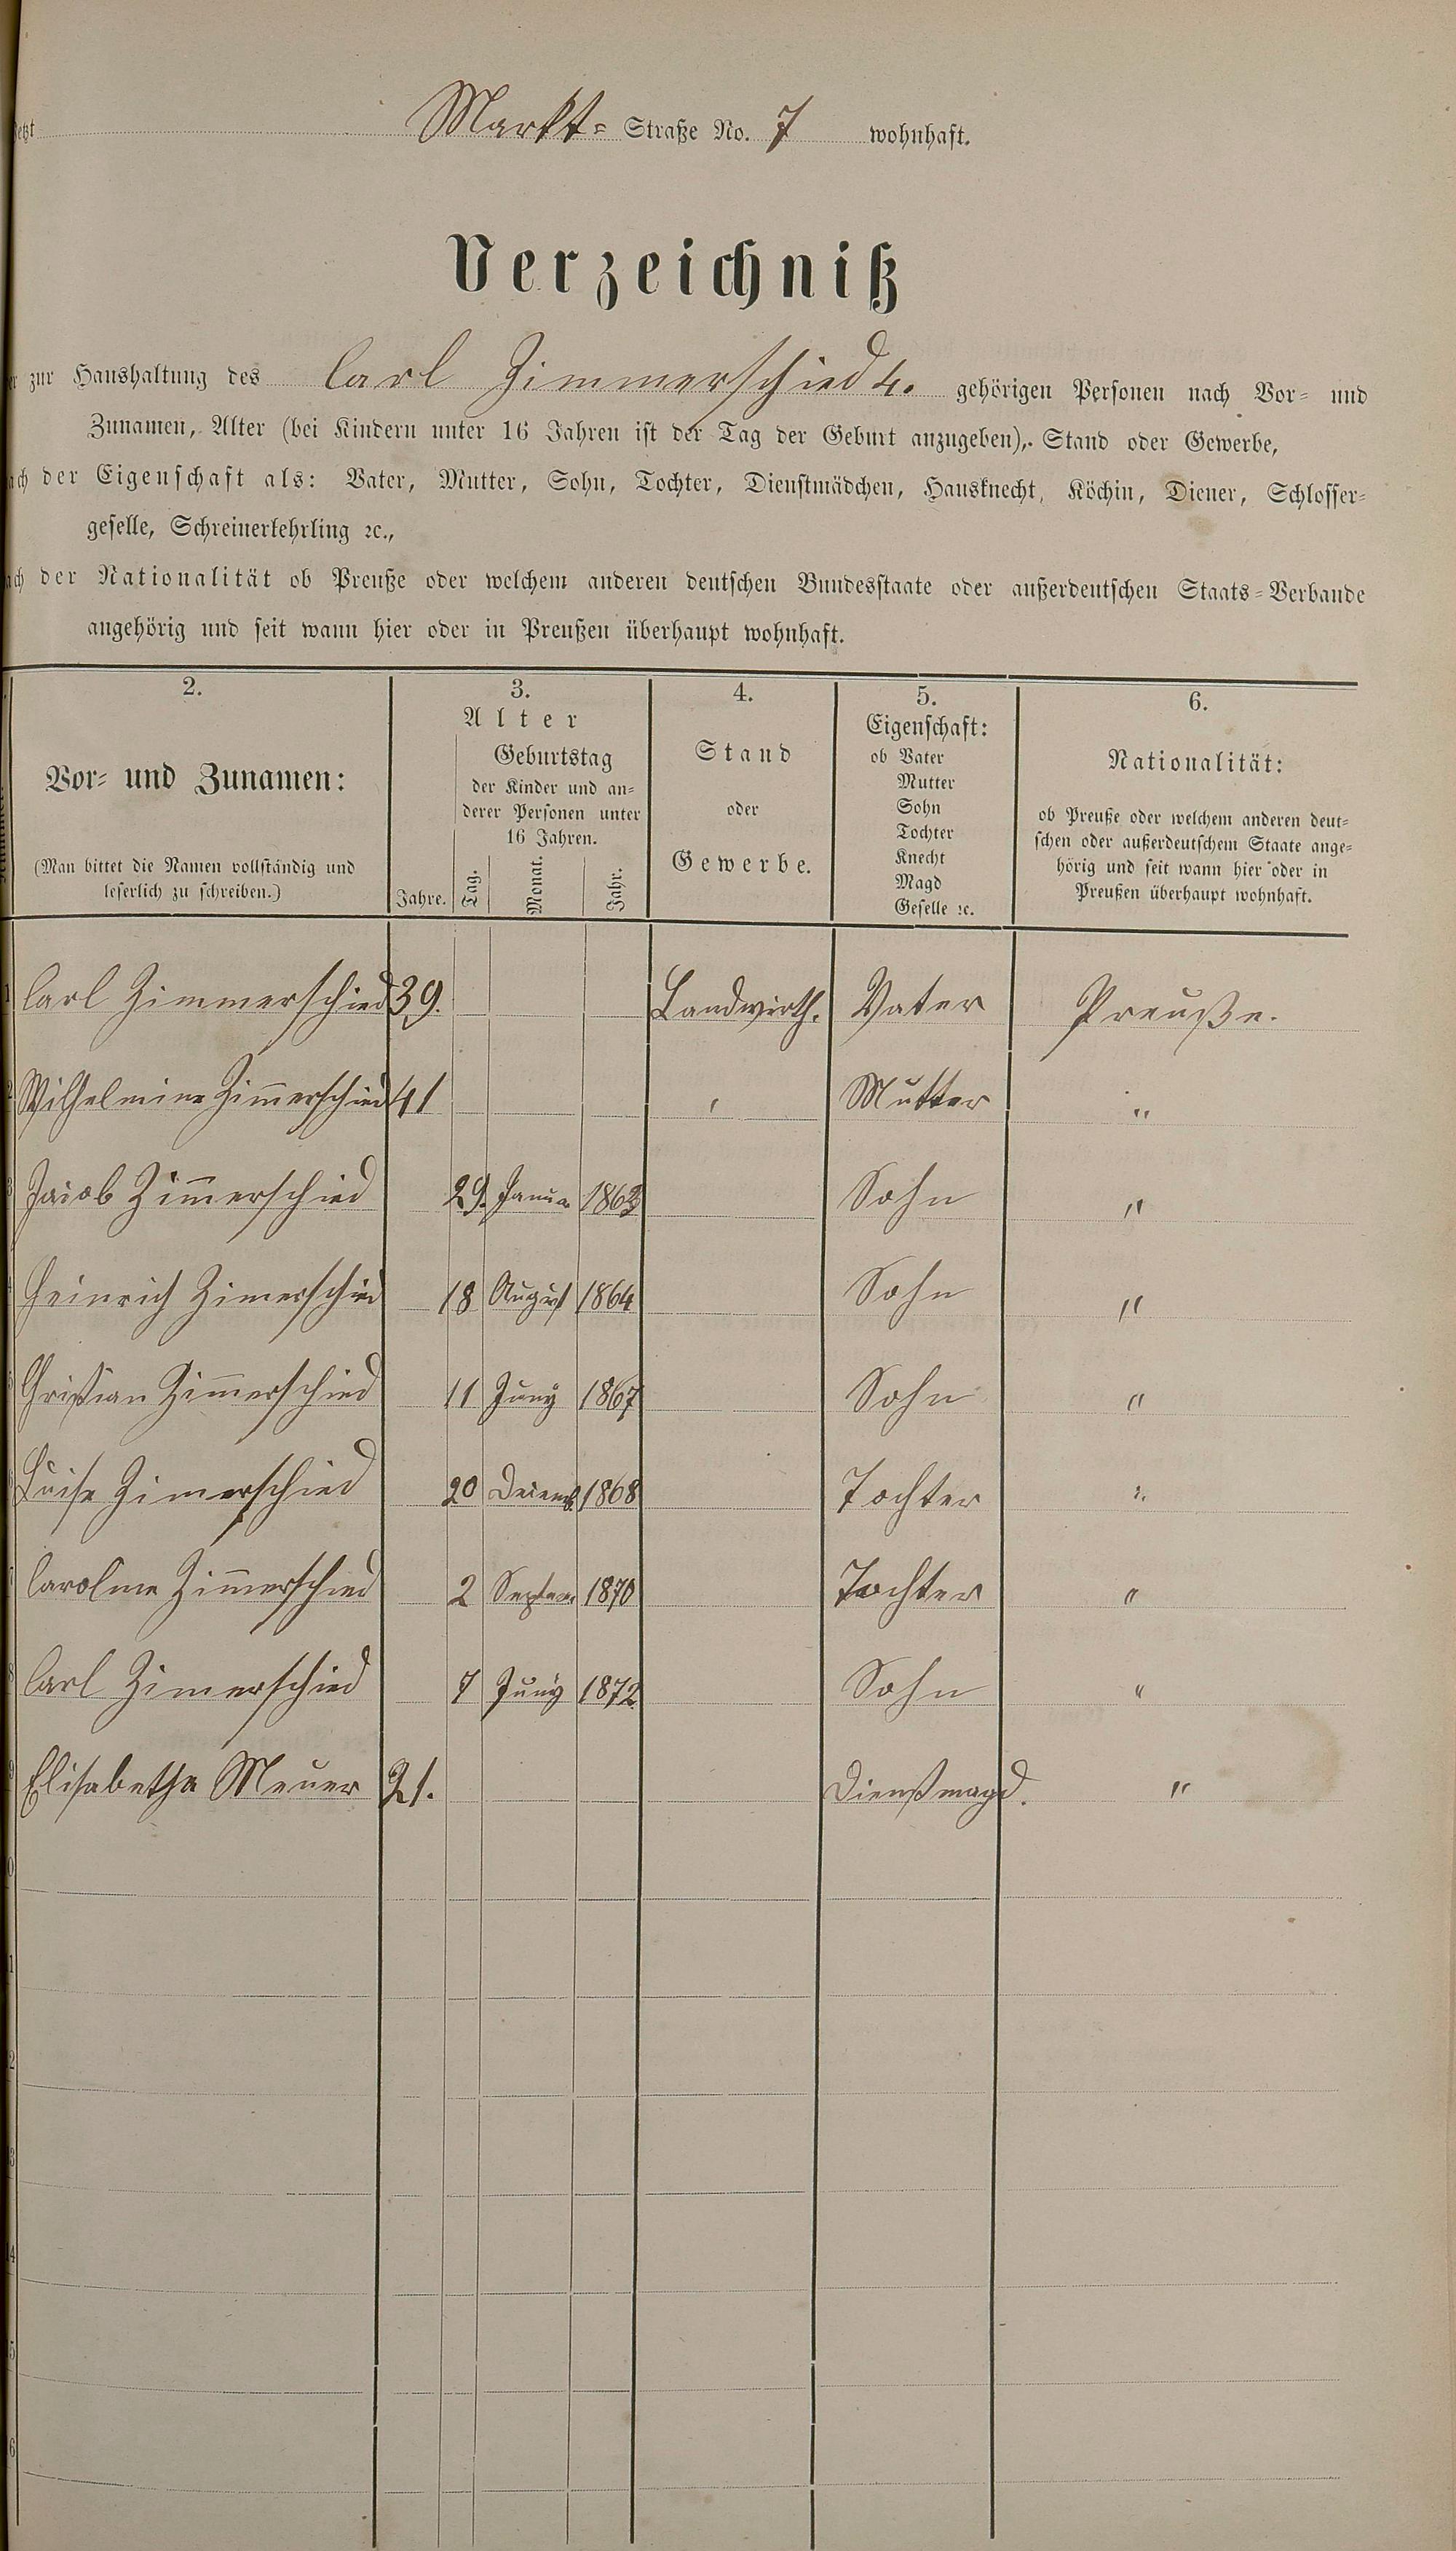 Markt- Straße No. 7 wohnhaft.
Verzeichniß
zur Haushaltung des Carl Zimmerschied 4. gehörigen Personen nach Vor- und
Zunamen, Alter (bei Kindern unter 16 Jahren ist der Tag der Geburt anzugeben), Stand oder Gewerbe,
der Eigenschaft als: Vater, Mutter, Sohn, Tochter, Dienstmädchen, Hausknecht, Köchin, Diener, Schlosser-
geselle, Schreinerlehrling ꝛc.,
der Nationalität ob Preuße oder welchem anderen deutschen Bundesstaate oder außerdeutschen Staats-Verbande
angehörig und seit wann hier oder in Preußen überhaupt wohnhaft.
2. 3. 4. 5. 6.
Vor- und Zunamen:
(Man bittet die Namen vollständig und
leserlich zu schreiben.)
Alter
Geburtstag
der Kinder und an-
derer Personen unter
16 Jahren.
Jahre. Tag. Monat. Jahr.
Stand
oder
Gewerbe.
Eigenschaft:
ob Vater
Mutter
Sohn
Tochter
Knecht
Magd
Geselle ꝛc.
Nationalität:
ob Preuße oder welchem anderen deut-
schen oder außerdeutschem Staate ange-
hörig und seit wann hier oder in
Preußen überhaupt wohnhaft.
Carl Zimmerschied 39. Landwirth. Vater Preuße.
Wilhelmine Zim̅erschied 41 Mutter "
Jacob Zim̅erschied 29. Janua 1863 Sohn "
Heinrich Zimerschied 18 August 1864 Sohn "
Christian Zim̅erschied 11 Juny 1867 Sohn "
Luise Zimerschied 20 Decemb 1868 Tochter "
Caroline Zim̅erschied 2 Septem 1870 Tochter "
Carl Zimerschied 7 Juny 1872 Sohn "
Elisabetha Meuer 21. Dienstmagd. "